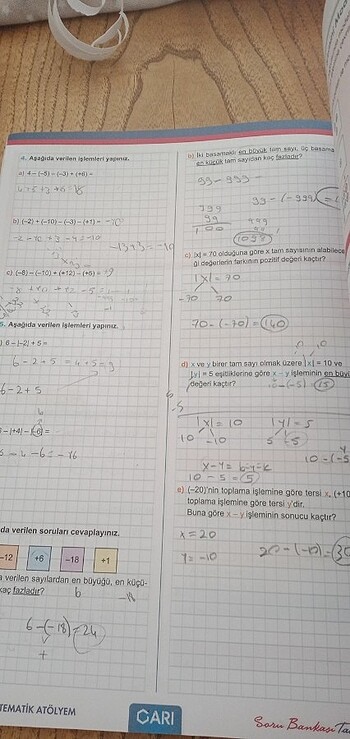 4. Aşağıda verilen işlemleri yapınız.
a) 4 – (–5) – (–3) + (+6) =
4+5+3+6 18
b) (–2) + (–10) – (–3) – (+1) = -10
-2-10+3-1=-10
-13+3=-10
c) (–8) – (–10) + (+12) – (+5) =
5. Aşağıda verilen işlemleri yapınız.
) 6 – |–2| + 5 =
6-2+5 = 4+5=9
6-2+5
– |+4| – |–6| =
-4-6=-16
da verilen soruları cevaplayınız.
–12 +6 –18 +1
a verilen sayılardan en büyüğü, en küçü-
kaç fazladır?
6 -18
6-(-18)=24
+
TEMATİK ATÖLYEM
b) İki basamaklı en büyük tam sayı, üç basama
en küçük tam sayıdan kaç fazladır?
99-999-
99-(-999)=
999
99
1098
c) |x| = 70 olduğuna göre x tam sayısının alabilece
ği değerlerin farkının pozitif değeri kaçtır?
|x|=70
-70 70
70-(-70)=140
d) x ve y birer tam sayı olmak üzere |x| = 10 ve
|y| = 5 eşitliklerine göre x – y işleminin en büyü
değeri kaçtır? 10-(-5)=15
|x|=10 |y|=5
10 -10 5 -5
10-(-5
10-5=5
e) (–20)'nin toplama işlemine göre tersi x, (+10
toplama işlemine göre tersi y'dir.
Buna göre x – y işleminin sonucu kaçtır?
x=20
y=-10
20-(-10)=30
ÇARI
Soru Bankası Ta